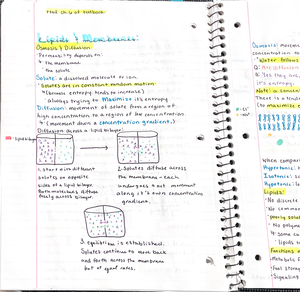 read ch. 6 of textbook
Lipids & Membranes
Osmosis & Diffusion
Permeability depends on:
the membrane
the solute
Solute: a dissolved molecule or ion.
Solutes are in constant random motion
(because entropy tends to increase)
always trying to maximize its entropy
Diffusion: movement of solute from a region of
high concentration to a region of low concentration
(movement down a concentration gradient.)
Diffusion across a lipid bilayer
lipid bilayer
1. start with different
solutes on opposite
sides of a lipid bilayer.
Both molecules diffuse
freely across bilayer.
2. Solutes diffuse across
the membrane - each
undergoes a net movement
along its own concentration
gradient.
3. equilibrium is established.
Solutes continue to move back
and forth across the membrane
but at equal rates.
Osmosis: move
concentration to
Water follows
Note: a concen
There is a tend
(to max
When compari
Hypertonic:
Isotonic:
Hypotonic:
Lipids:
No discrete
No common
No polyme
some co
lipids
Functions
Metabolic f
Signaling